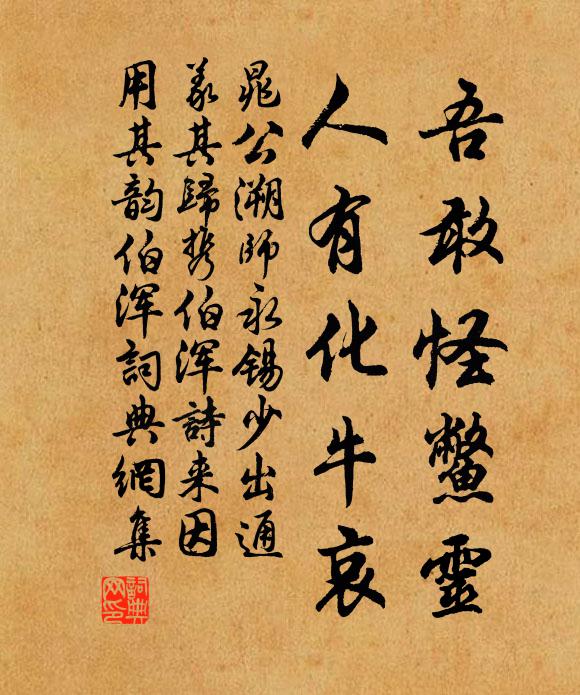 吾敢怪鱉靈
人有化牛哀
晁公溯師永錫少出通
義其歸携伯渾詩来因
用其韵伯渾詞典網集